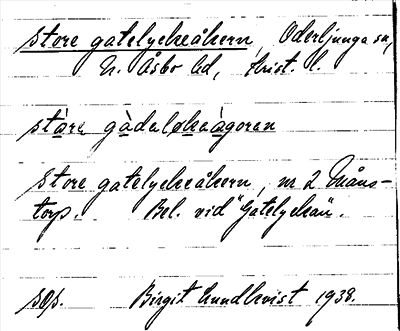 store gatelyckeåkern, Oderljunga sn,
N. Åsbo hd, Krist. l.
stàre gàdeløkeàgoren
store gatelyckeåkern, nr 2 Måns-
torp. Bel. vid "Gatelyckan".
sps. Birgit Lundkvist 1938.